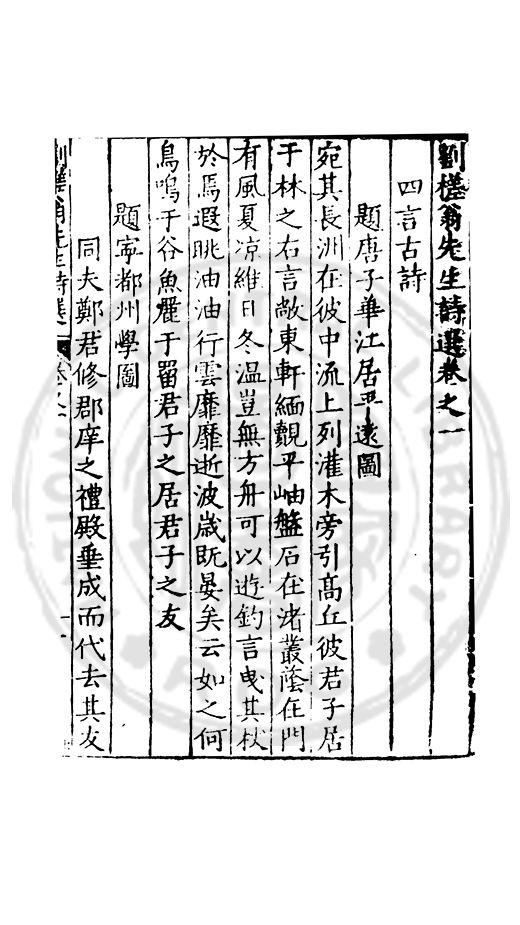 劉槎翁先生詩選卷之一
四言古詩
題唐子華江居平遠圖
宛其長洲在彼中流上列灌木旁引高丘彼君子居
于林之右言敞東軒緬覿平岫盤石在渚叢蔭在門
有風夏凉維日冬温豈無方舟可以遊釣言曵其杖
於焉遐眺油油行雲靡靡逝波歳既晏矣云如之何
鳥鳴于谷魚麗于罶君子之居君子之友
題寧都州學圖
同夫鄭君修郡庠之禮殿垂成而代去其友
劉槎翁先生詩選 卷之一
一